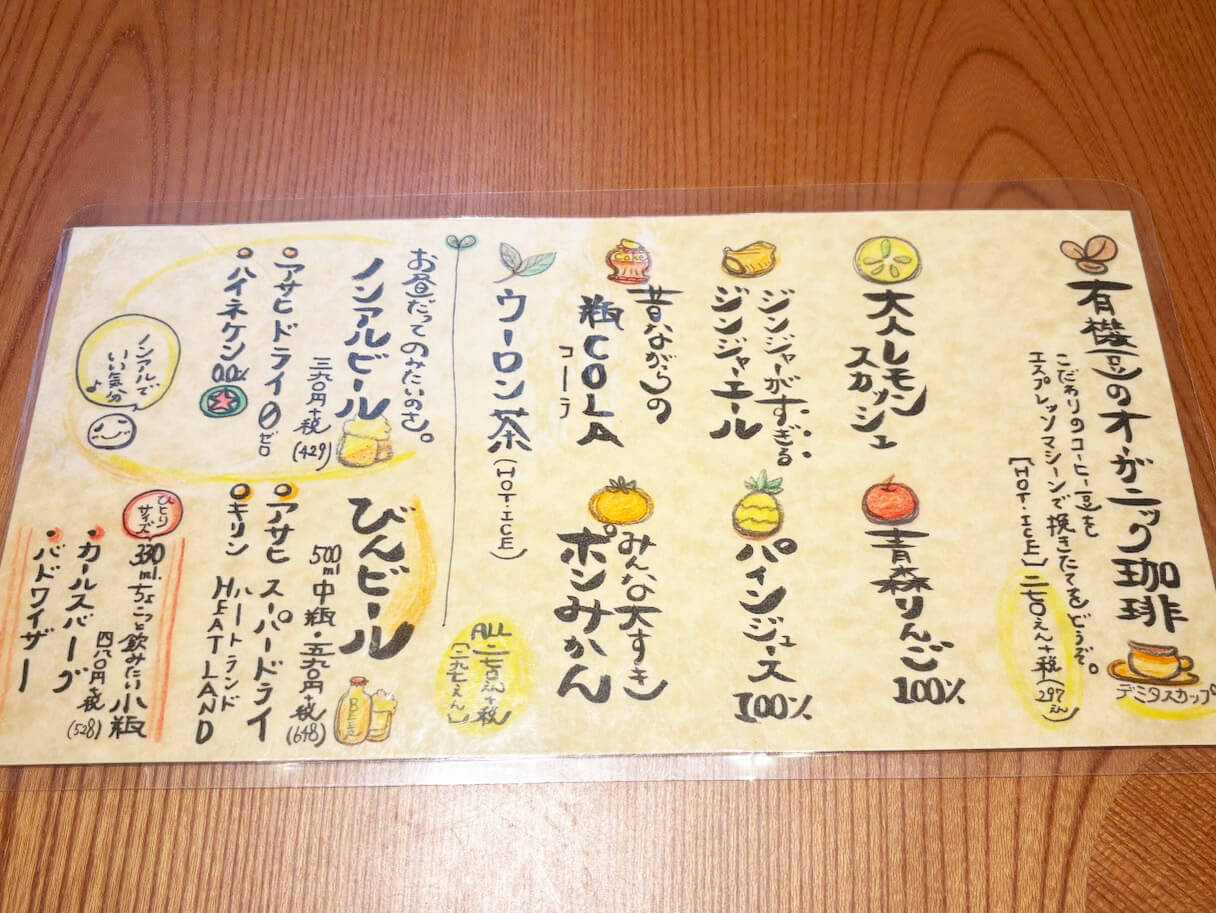 有機豆のオーガニック珈琲
こだわりのコーヒー豆を
エスプレッソマシーンで挽きたてをどうぞ。
[HOT・ICE]
二七〇えん+税
(297えん)
デミタスカップ
大人レモン
スカッシュ
青森りんご
100%
ジンジャーがすぎる
ジンジャーエール
パインジュース
100%
Coke
昔ながらの
瓶COLA
コーラ
みんな大すき
ポンみかん
ウーロン茶
(HOT・ICE)
ALL 二七〇えん+税
[二九七えん]
お昼だってのみたいのさ。
ノンアルビール
三九〇円+税
(429)
・アサヒドライ0
ゼロ
・ハイネケン0.0%
ノンアルで
いい気分
♪
びんビール
BEER
500ml中瓶・五九〇円+税
(648)
・アサヒ スーパードライ
・キリン HEATLAND
ハートランド
ひとり
サイズ
330ml.ちょこっと飲みたい小瓶
四八〇円+税
(528)
・カールスバーグ
・バドワイザー